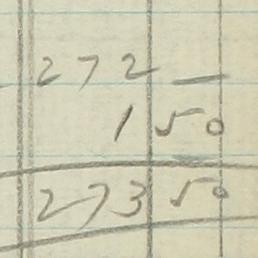 272 —
1 50
273 50